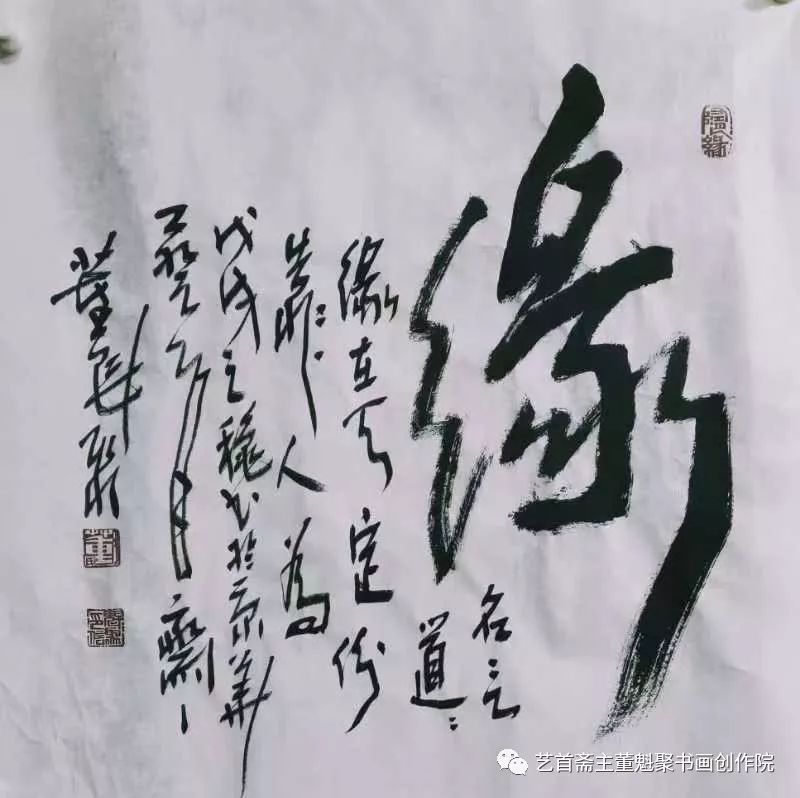 缘
名言
道
缘在天定份
靠人为
戊戌之秋书于京华
艺首斋
董魁聚
艺首斋主董魁聚书画创作院